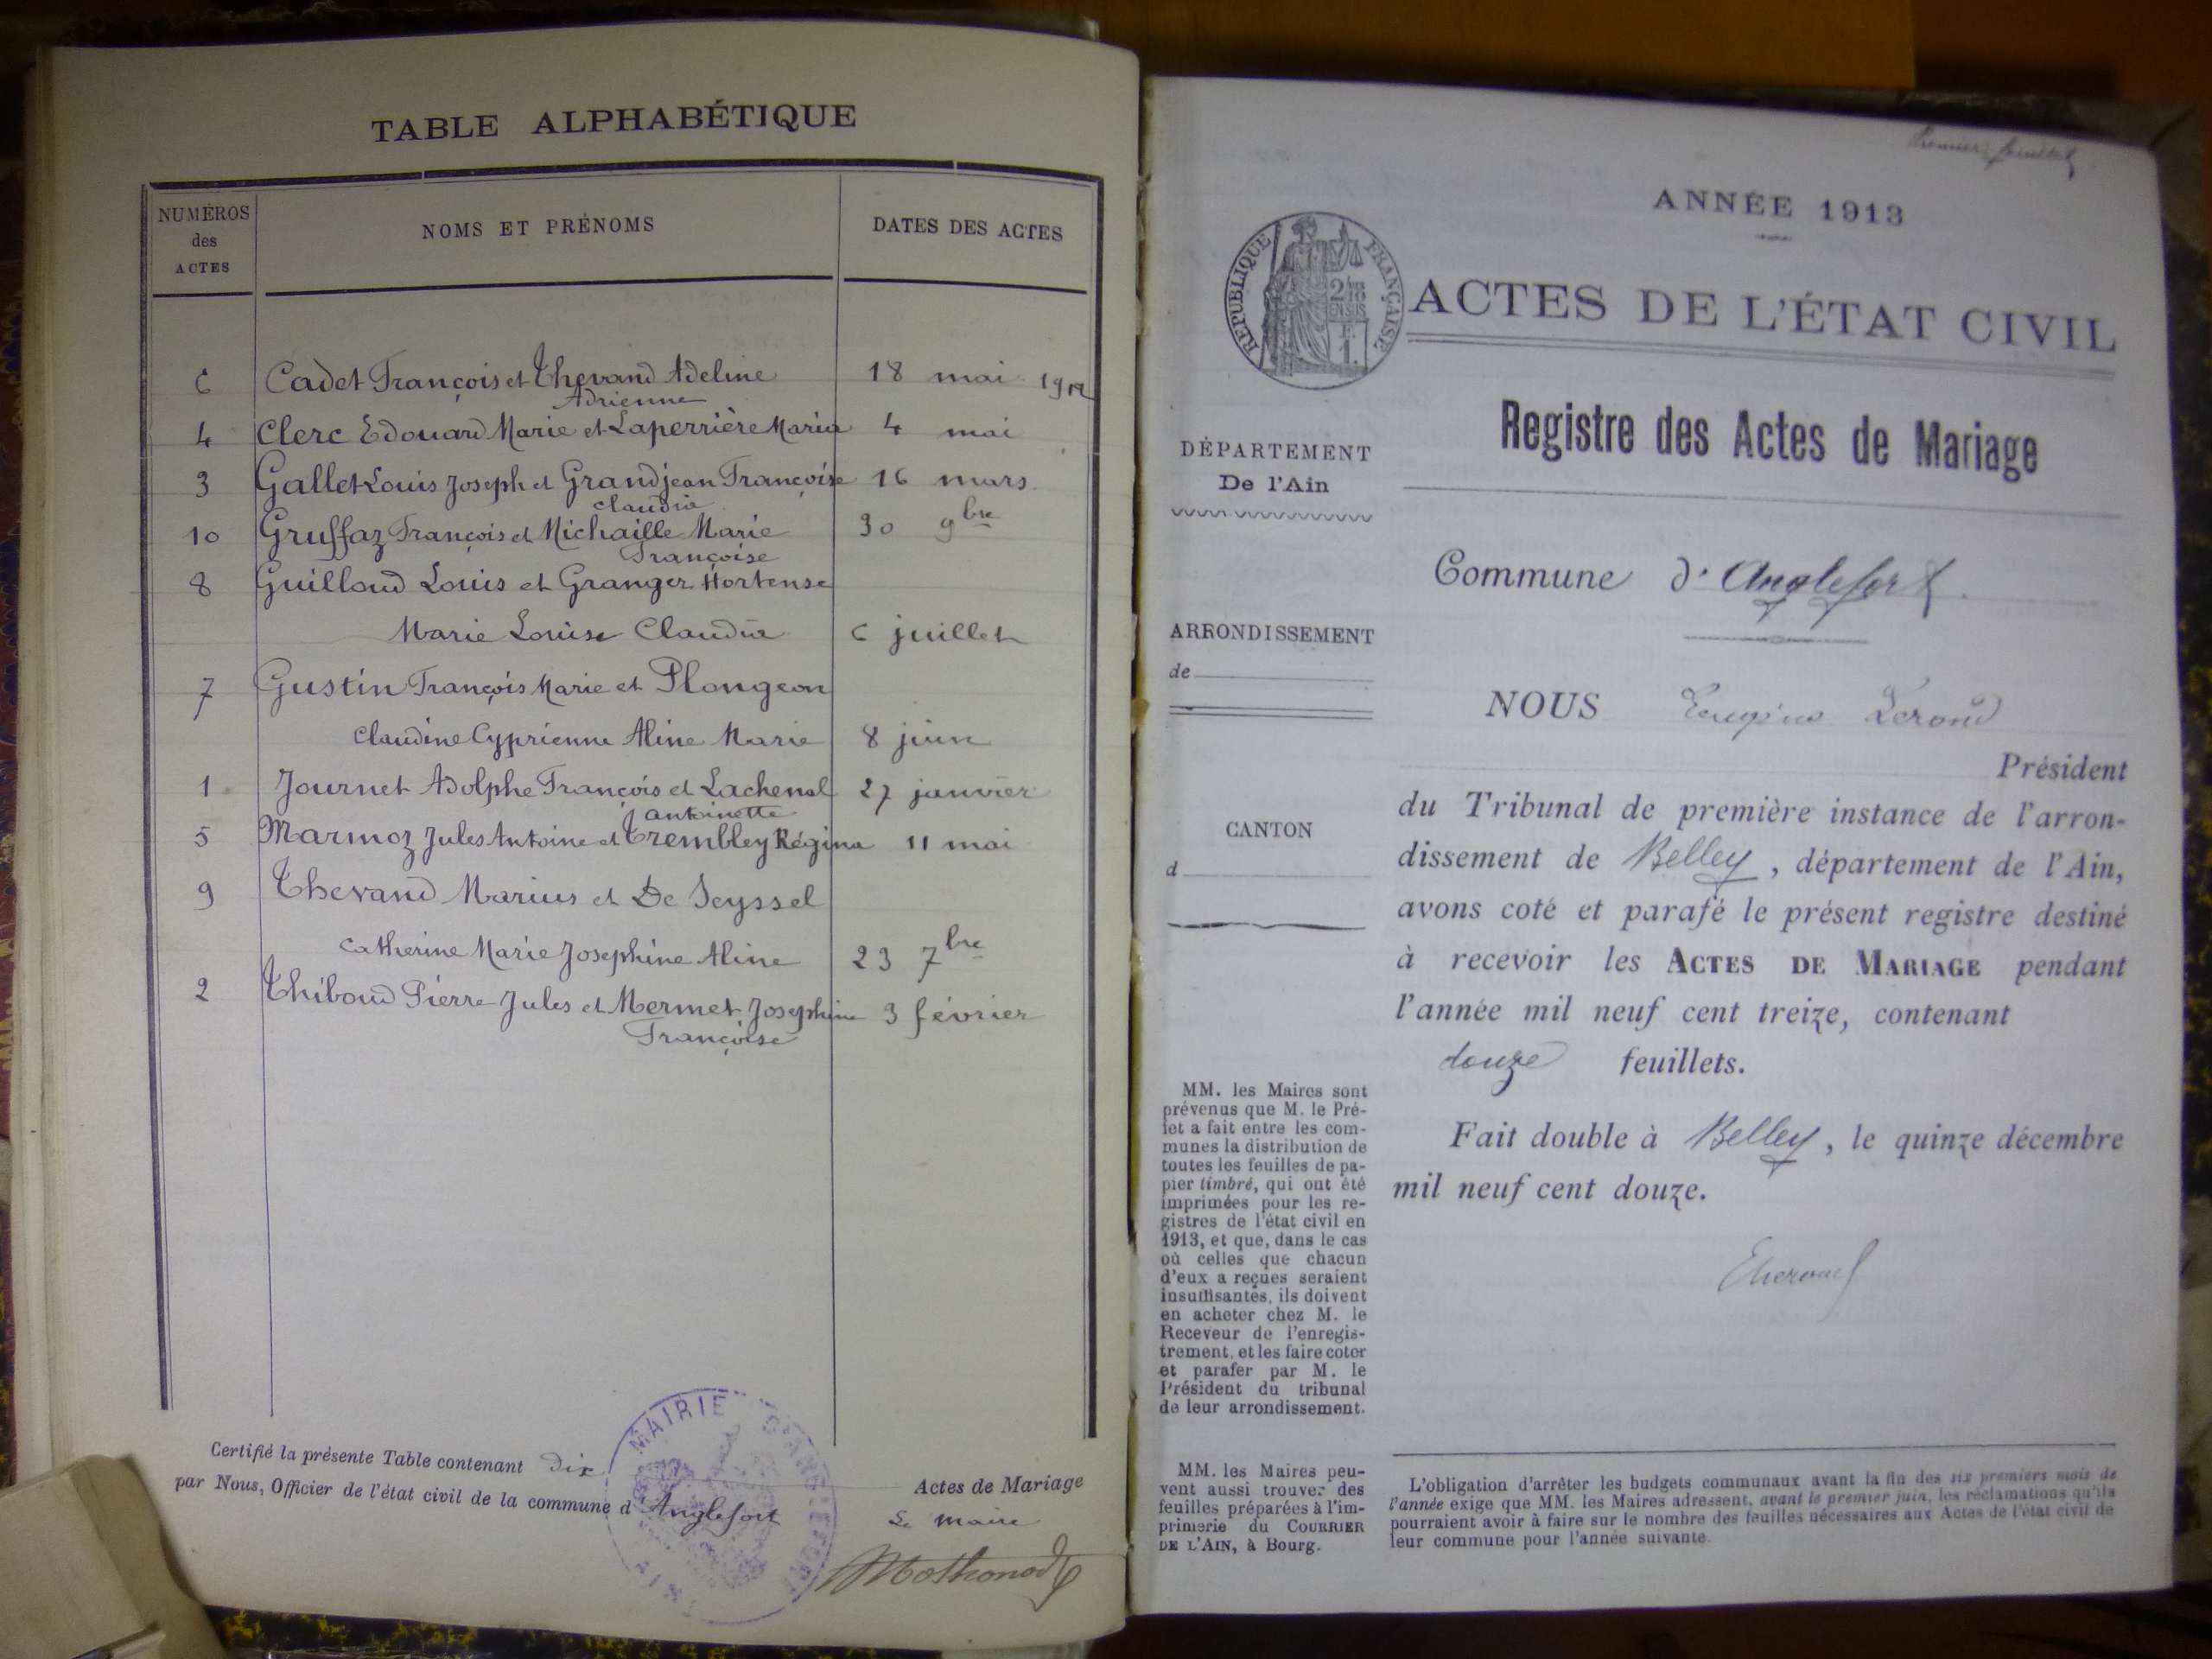 TABLE ALPHABÉTIQUE
NUMÉROS
des
ACTES
NOMS ET PRÉNOMS
DATES DES ACTES
6 Cadet François et Thevand Adeline 18 mai 1912
Adrienne
4 Clerc Edouard Marie et Laperrière Maria 4 mai
3 Gallet Louis Joseph et Grandjean Françoise 16 mars
Claudia
10 Gruffaz François et Michaille Marie 30 9bre
Françoise
8 Guilloud Louis et Granger Hortense
Marie Louise Claudia 6 juillet
7 Gustin François Marie et Plongeon
Claudine Cyprienne Aline Marie 8 juin
1 Journet Adolphe François et Lachenal 27 janvier
antoinette
5 Marmoz Jules Antoine et Trembley Régina 11 mai
9 Thevand Marius et De Seyssel
Catherine Marie Josephine Aline 23 7bre
2 Thiboud Pierre Jules et Mermet Josephine 3 février
Françoise
Certifié la présente Table contenant dix Actes de Mariage
par Nous, Officier de l'état civil de la commune d'Anglefort
Le maire
MAIRIE D'ANGLEFORT
AIN
ANNÉE 1913
RÉPUBLIQUE FRANÇAISE
ACTES DE L'ÉTAT CIVIL
Registre des Actes de Mariage
DÉPARTEMENT
De l'Ain
Commune d'Anglefort
ARRONDISSEMENT
de
CANTON
d
NOUS Eugène Leroud
Président
du Tribunal de première instance de l'arron-
dissement de Belley, département de l'Ain,
avons coté et parafé le présent registre destiné
à recevoir les ACTES DE MARIAGE pendant
l'année mil neuf cent treize, contenant
douze feuillets.
Fait double à Belley, le quinze décembre
mil neuf cent douze.
MM. les Maires sont
prévenus que M. le Pré-
fet a fait entre les com-
munes la distribution de
toutes les feuilles de pa-
pier timbré, qui ont été
imprimées pour les re-
gistres de l'état civil en
1913, et que, dans le cas
où celles que chacun
d'eux a reçues seraient
insuffisantes, ils doivent
en acheter chez M. le
Receveur de l'enregis-
trement, et les faire coter
et parafer par M. le
Président du tribunal
de leur arrondissement.
MM. les Maires peu-
vent aussi trouver des
feuilles préparées à l'im-
primerie du COURRIER
DE L'AIN, à Bourg.
L'obligation d'arrêter les budgets communaux avant la fin des six premiers mois de
l'année exige que MM. les Maires adressent, avant le premier juin, les réclamations qu'ils
pourraient avoir à faire sur le nombre des feuilles nécessaires aux Actes de l'état civil de
leur commune pour l'année suivante.